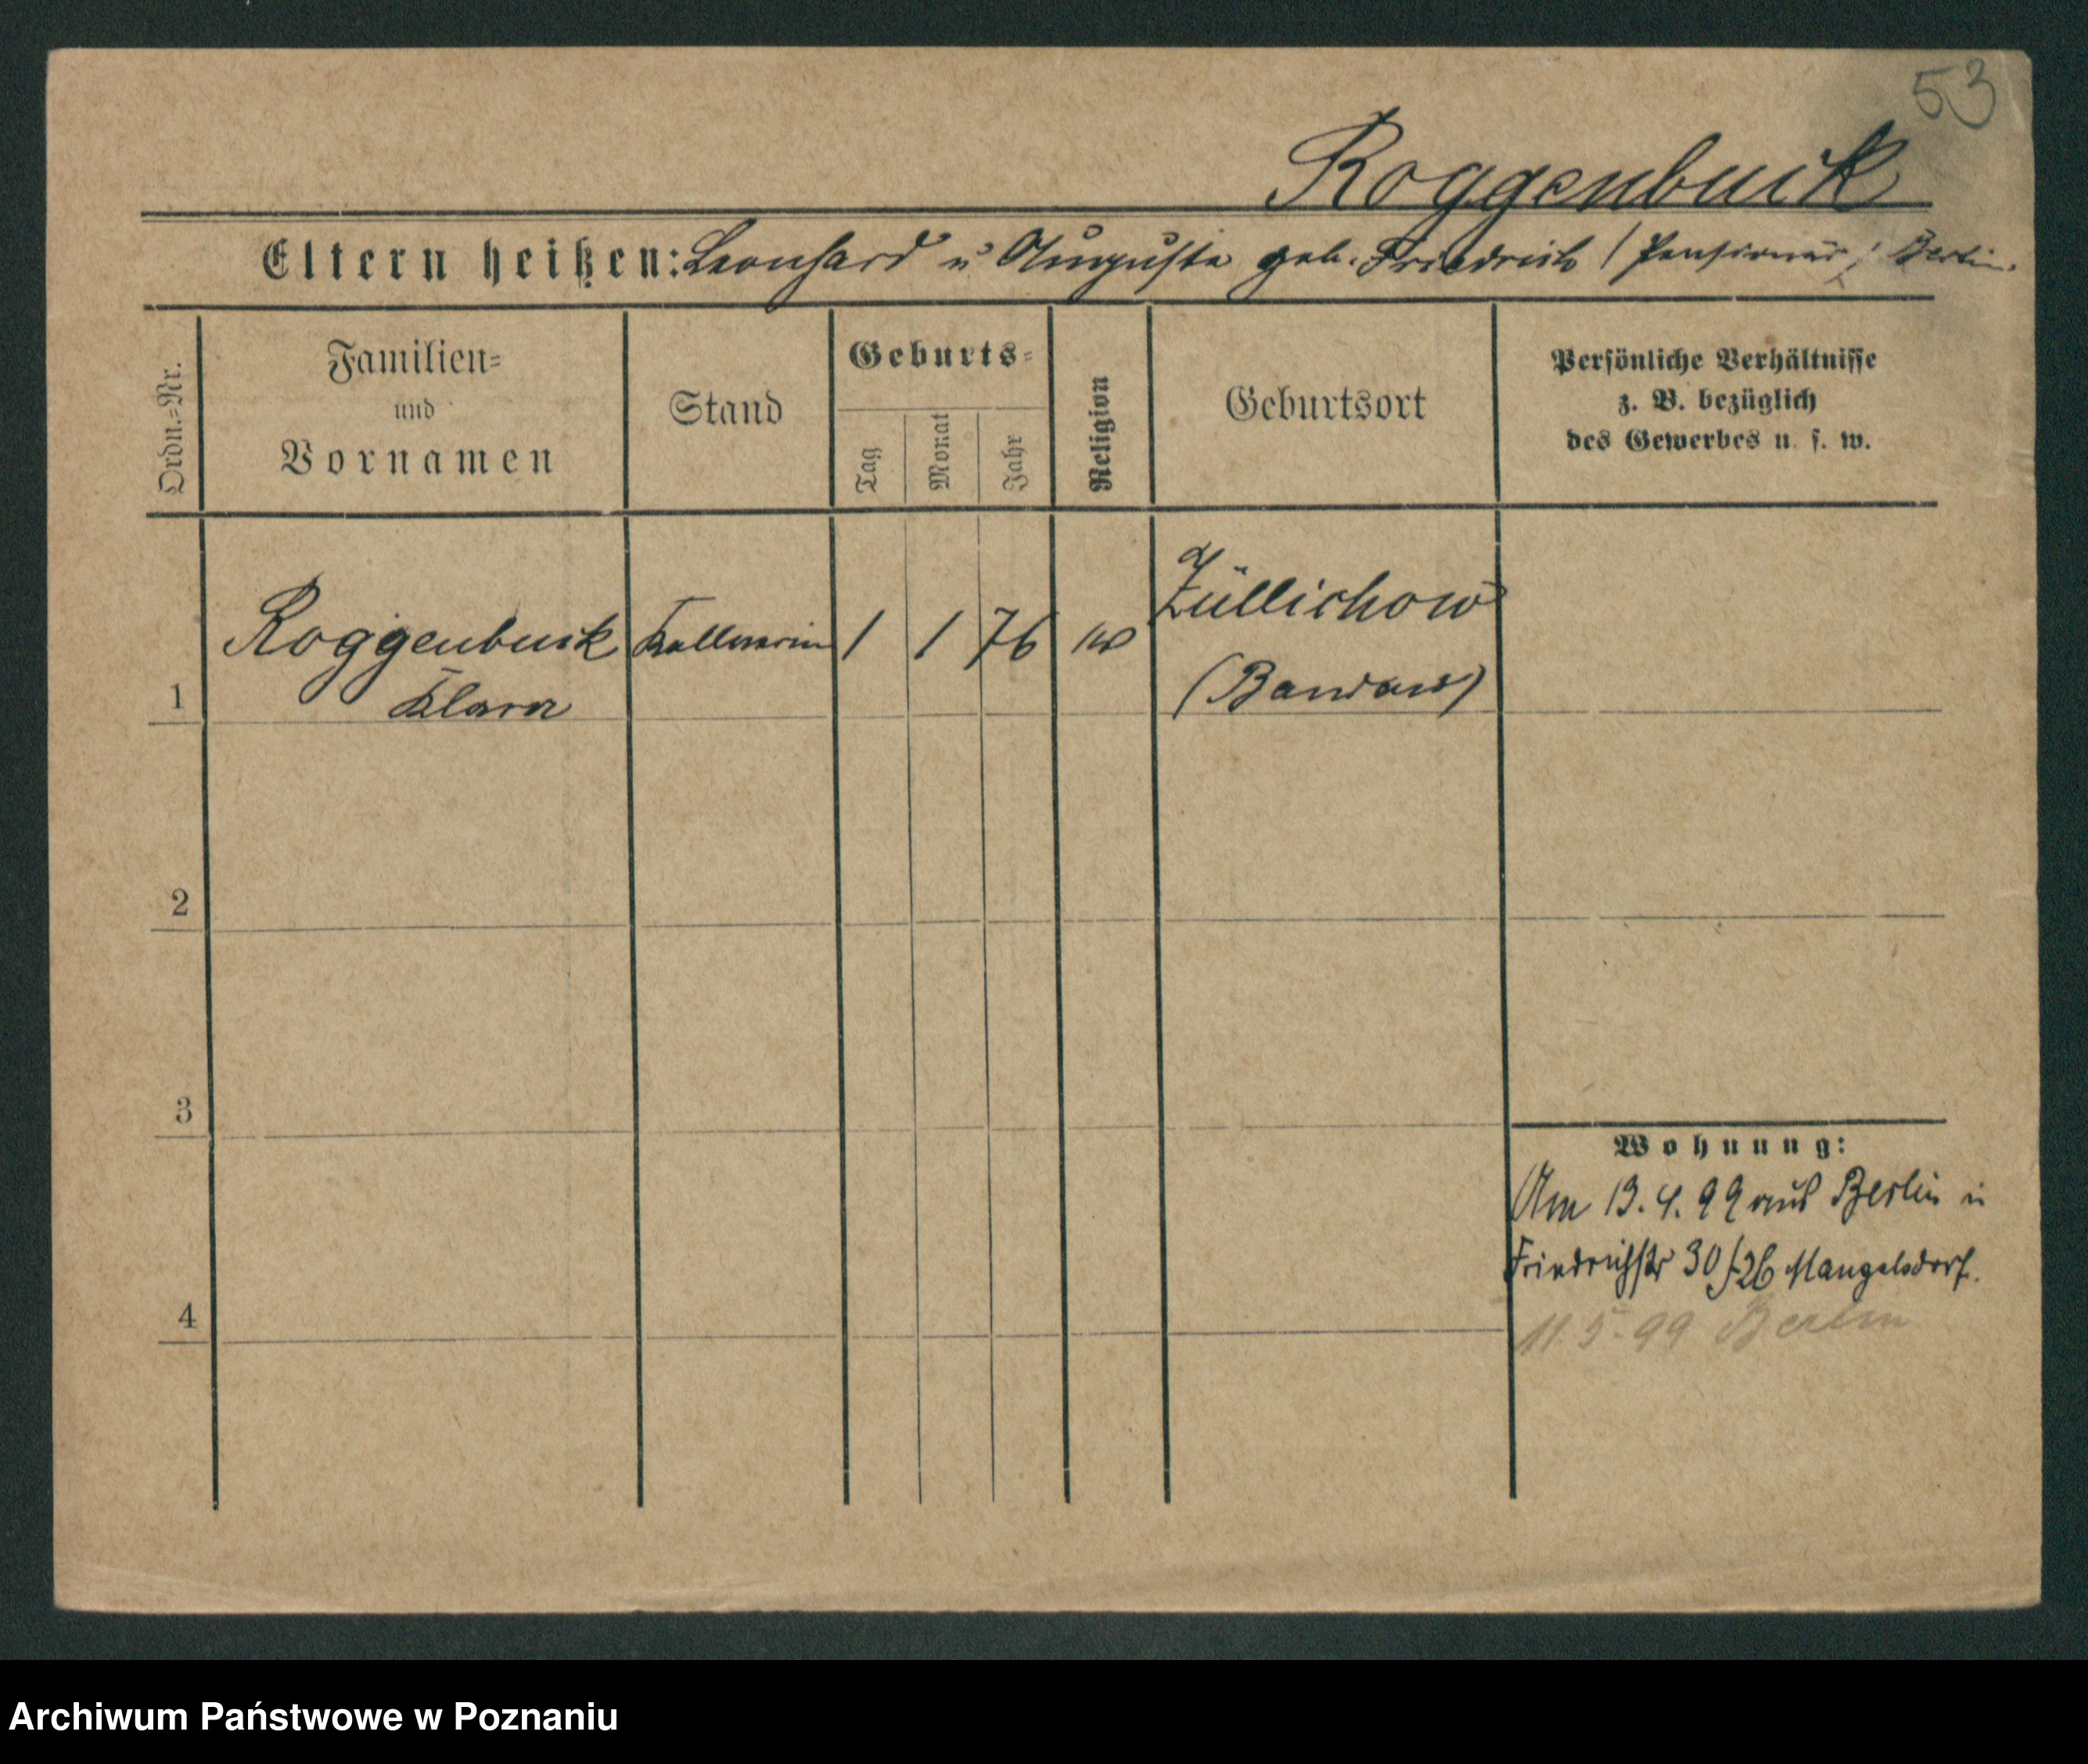 53
Roggenbuck
Eltern heißen: Leonhard u Auguste geb. Friedrich / Pensionär / Berlin.
Ordn.=Nr.
Familien=
und
Vornamen
Stand
Geburts=
Tag
Monat
Jahr
Religion
Geburtsort
Persönliche Verhältnisse
z. B. bezüglich
des Gewerbes u. s. w.
1
Roggenbuck
Klara
Kellnerin
1 1 76
Züllichow
(Bandow)
2
3
4
Wohnung:
Am 13. 4. 99 aus Berlin in
Friedrichstr 30/26 Mangelsdorf.
11. 5. 99 Berlin
Archiwum Państwowe w Poznaniu